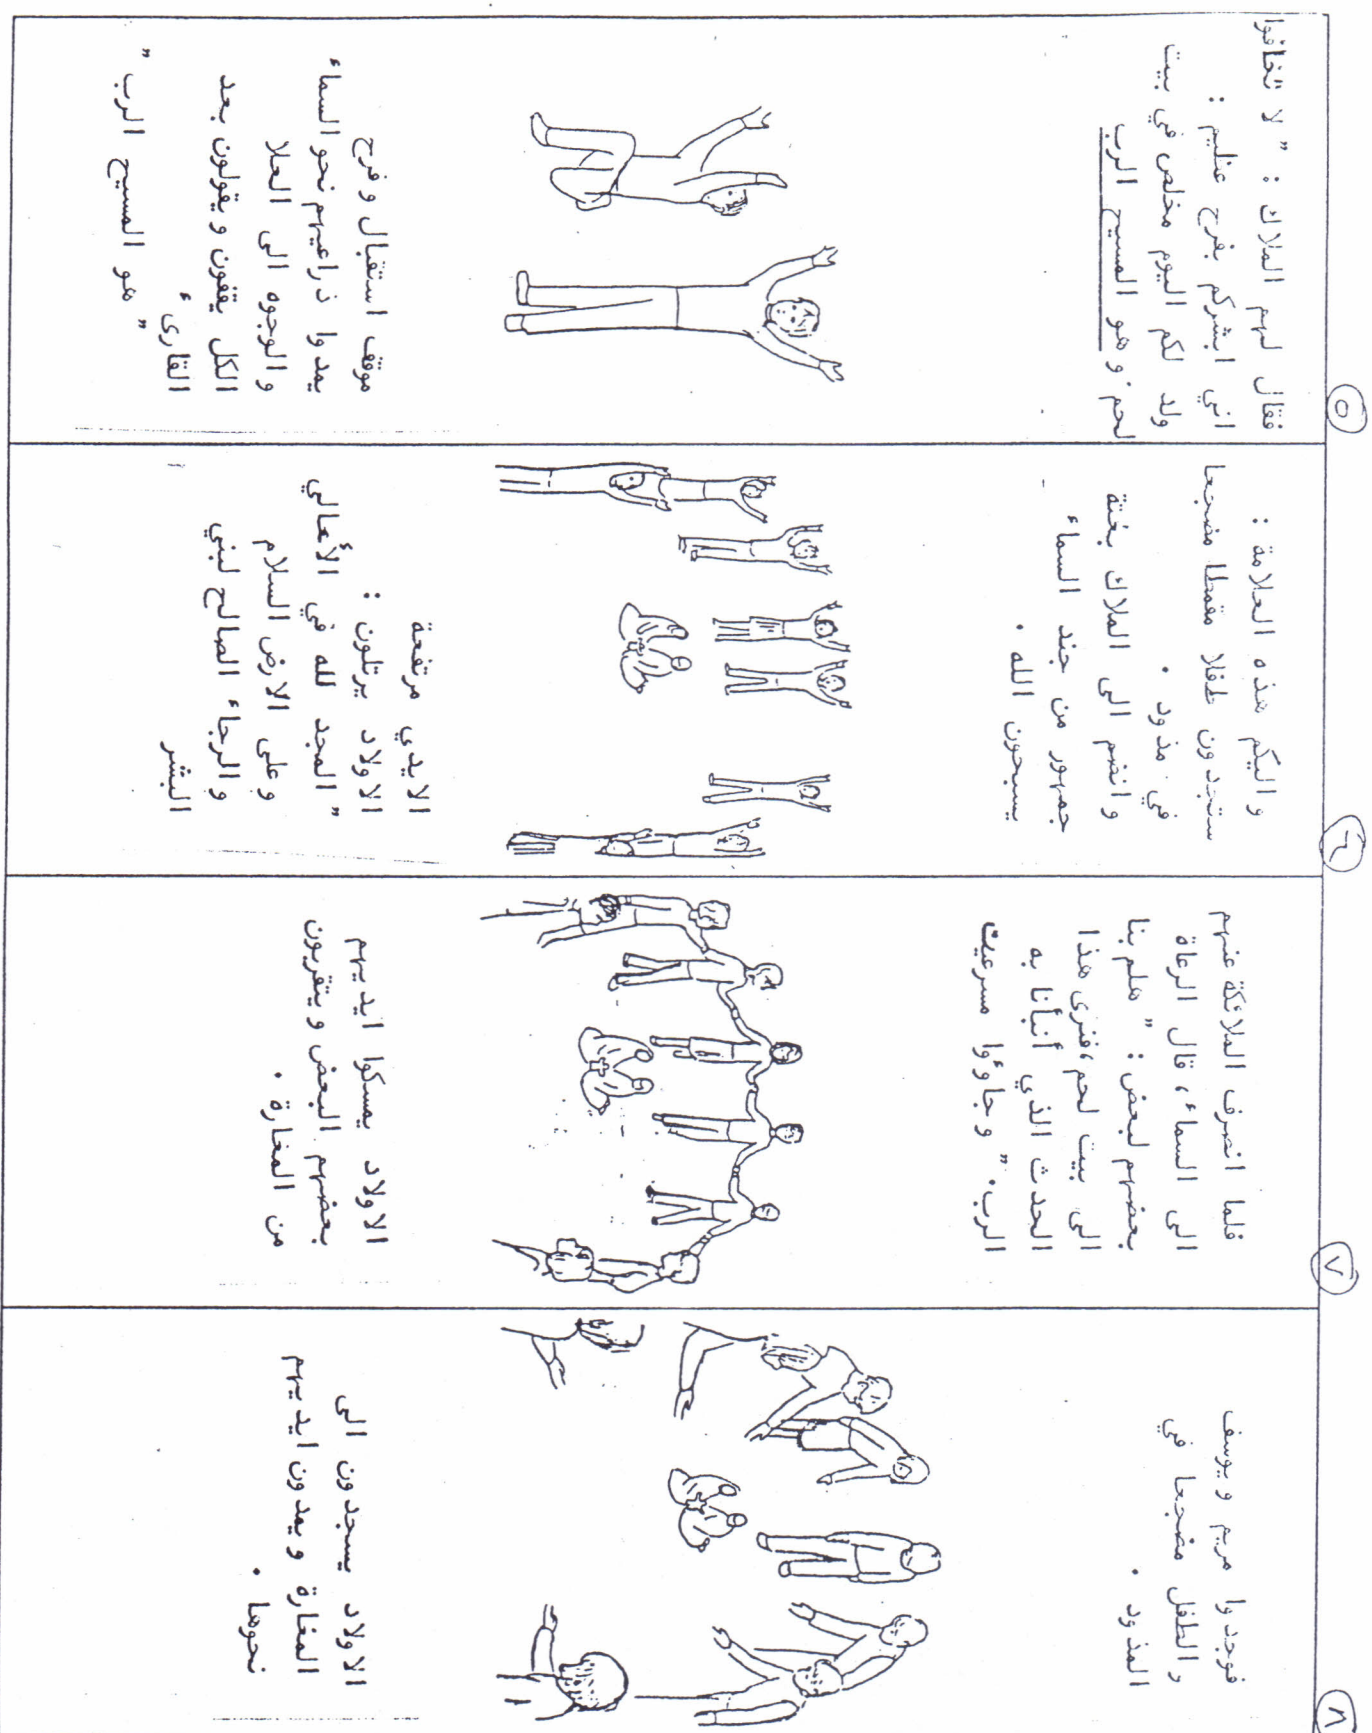 ٥
فقال لهم الملاك : " لا تخافوا
اني ابشركم بفرح عظيم :
ولد لكم اليوم مخلص في بيت
لحم وهو المسيح الرب
موقف استقبال وفرح
يمدوا ذراعيهم نحو السماء
والوجوه الى العلا
الكل يقفون ويقولون بعد
القارىء
" هو المسيح الرب "
٦
واليكم هذه العلامة :
ستجدون طفلا مقمطا مضجعا
في مذود .
وانضم الى الملاك بغتة
جمهور من جند السماء
يسبحون الله .
الايدي مرتفعة
الاولاد يرتلون :
" المجد لله في الأعالي
وعلى الارض السلام
والرجاء الصالح لبني
البشر
٧
فلما انصرف الملائكة عنهم
الى السماء ، قال الرعاة
بعضهم لبعض : " هلم بنا
الى بيت لحم ، فنرى هذا
الحدث الذي أنبأنا به
الرب . " وجاؤوا مسرعين
الاولاد يمسكوا ايديهم
بعضهم البعض ويتقربون
من المغارة .
٨
فوجدوا مريم ويوسف
والطفل مضجعا في
المذود .
الاولاد يسجدون الى
المغارة ويمدون ايديهم
نحوها .